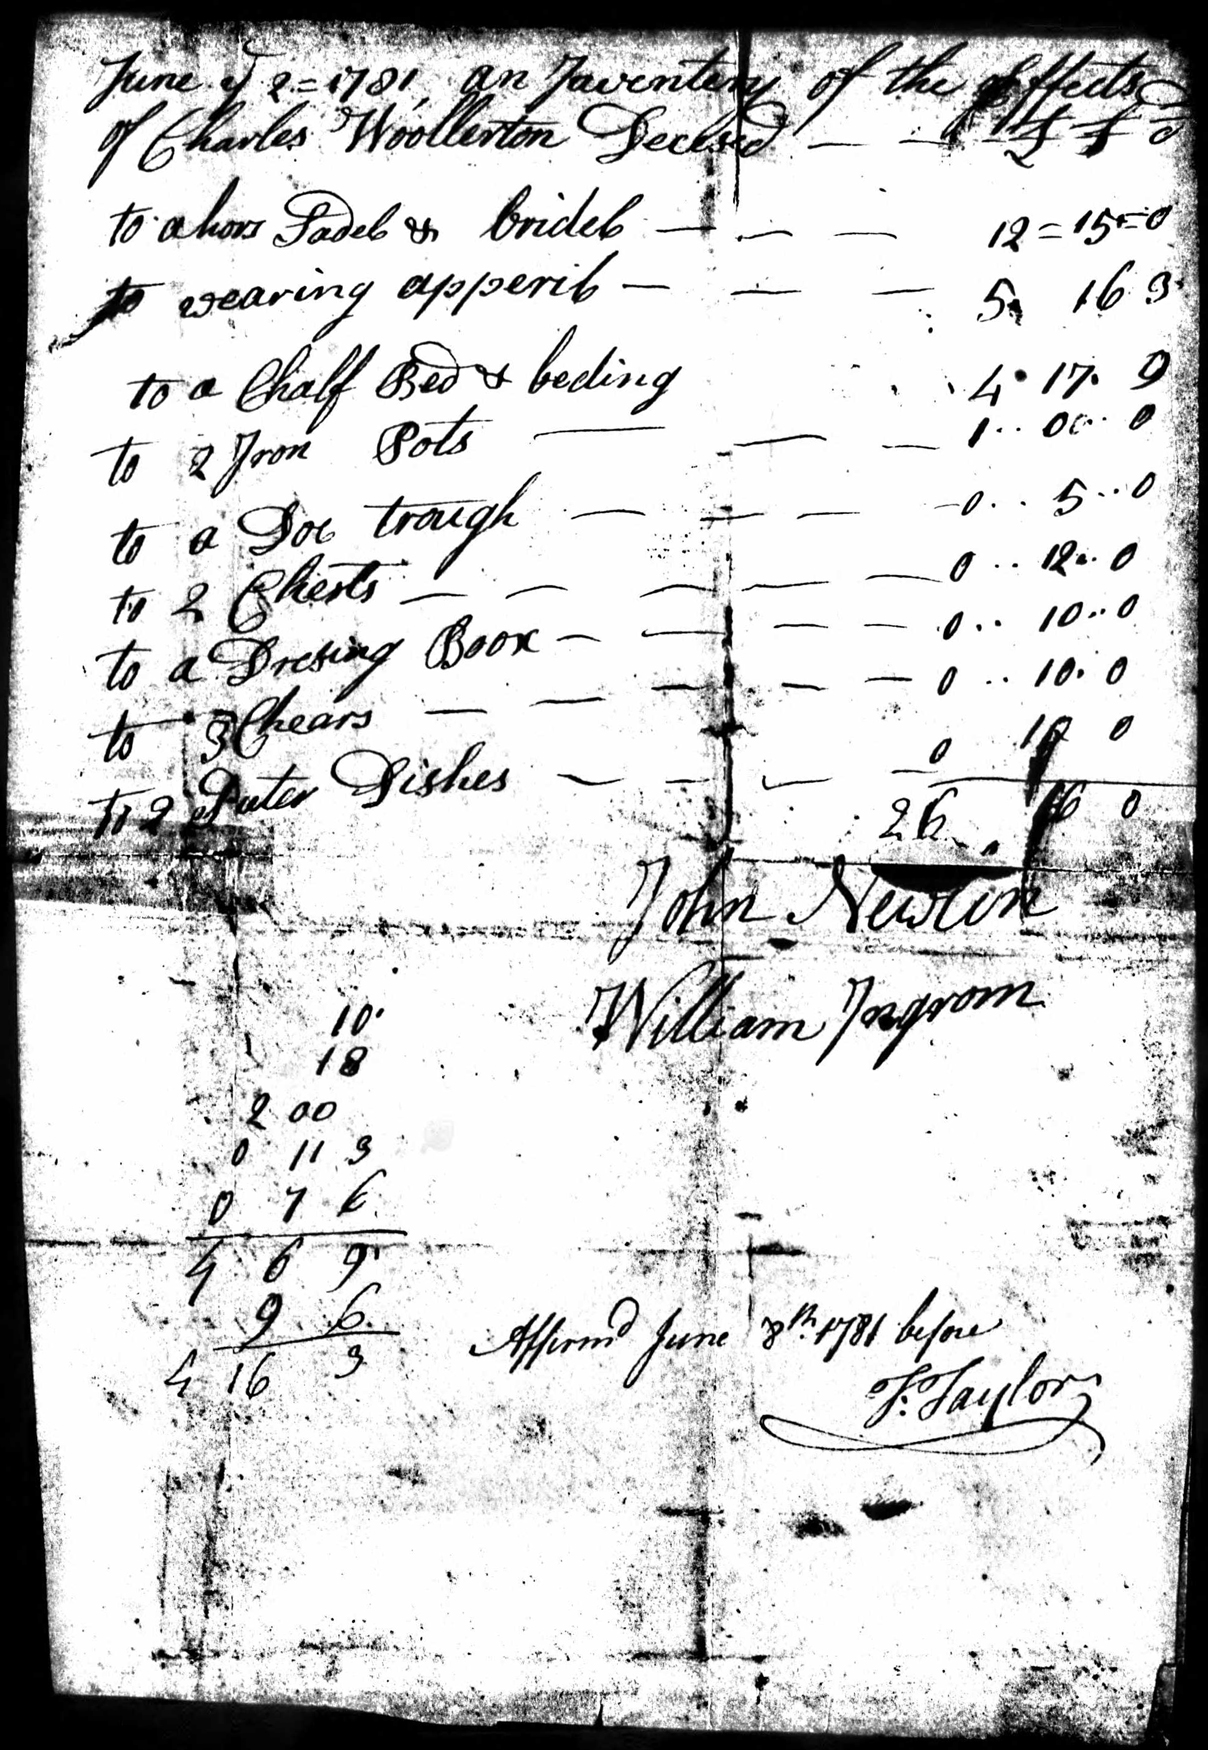 June ye 2=1781, an Inventery of the Effects
of Charles Woollerton Decesed — — £ s d
to a hors Sadel & bridel — — — 12=15=0
to wearing apperil — — — 5 16 3
to a Chaff Bed & beding 4 17 9
to 2 Iron Pots — — — 1 00 0
to a Doe trough — — — — 0 5 0
to 2 Chests — — — — — 0 12 0
to a Dresing Boox — — — — 0 10 0
to 3 Chears — — — — — 0 10 0
to 2 Puter Dishes — — — — 0 10 0
26 16 0
John Newlin
William Ingrom
10
18
2 00
0 11 3
0 7 6
4 6 9
9 6
4 16 3
Affirmd June 8th 1781 before
J. Taylor